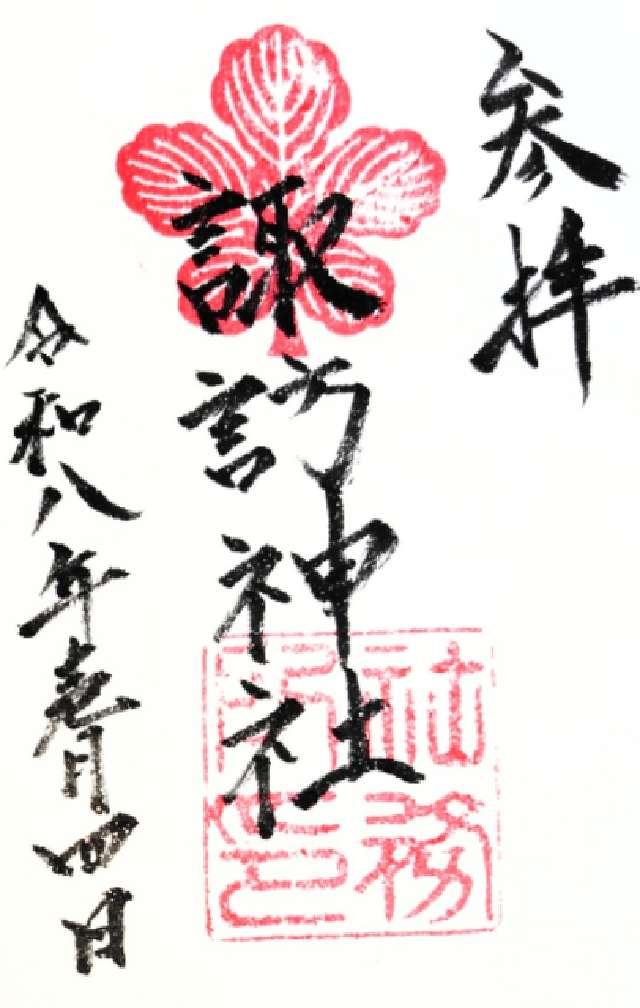 参拝
諏訪神社
社務
所印
令和八年壱月四日